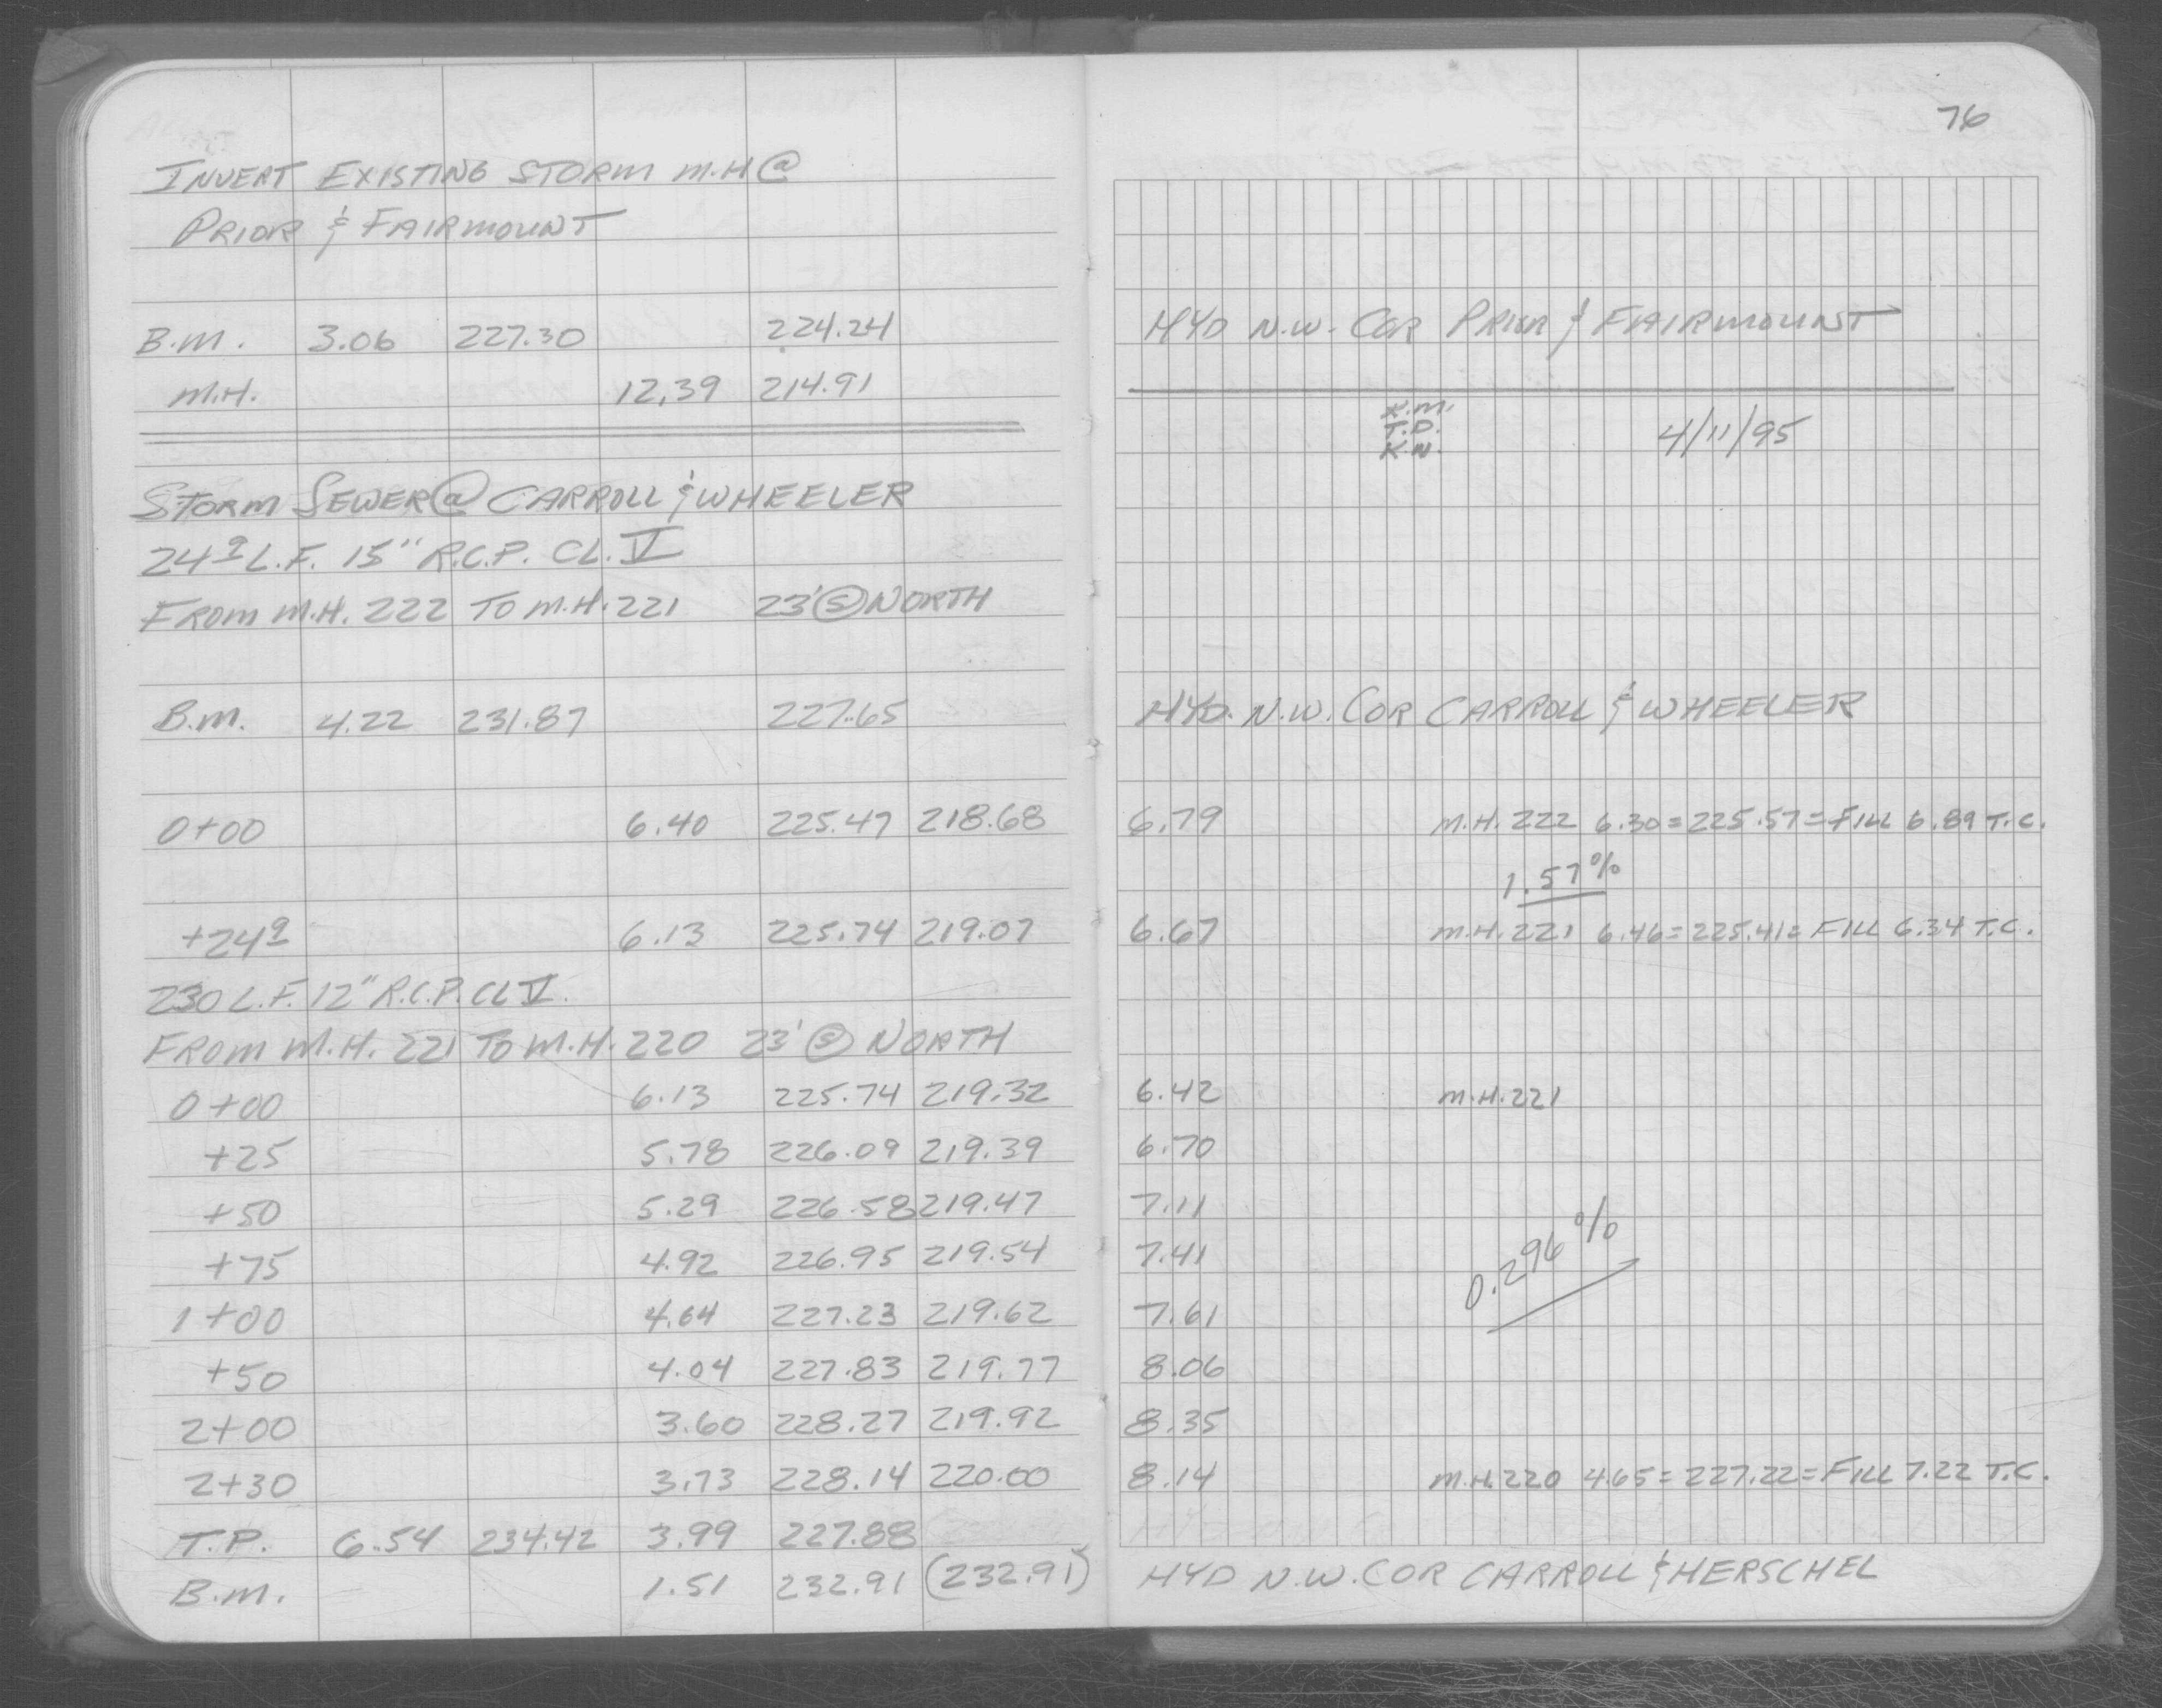 76
INVERT EXISTING STORM M.H @
PRIOR & FAIRMOUNT
B.M. 3.06 227.30 224.24 HYD N.W. COR PRIOR & FAIRMOUNT
M.H. 12.39 214.91
K.M.
T.D.
K.N.
4/11/95
STORM SEWER @ CARROLL & WHEELER
24⁹ L.F. 15" R.C.P. CL. V
FROM M.H. 222 TO M.H. 221 23' Ⓢ NORTH
B.M. 4.22 231.87 227.65 HYD. N.W. COR CARROLL & WHEELER
0+00 6.40 225.47 218.68 6.79 M.H. 222 6.30=225.57=FILL 6.89 T.C.
1.57%
+24⁹ 6.13 225.74 219.07 6.67 M.H. 221 6.46=225.41= FILL 6.34 T.C.
230 L.F. 12" R.C.P. CL V.
FROM M.H. 221 TO M.H. 220 23' Ⓢ NORTH
0+00 6.13 225.74 219.32 6.42 M.H. 221
+25 5.78 226.09 219.39 6.70
+50 5.29 226.58 219.47 7.11
+75 4.92 226.95 219.54 7.41
0.296%
1+00 4.64 227.23 219.62 7.61
+50 4.04 227.83 219.77 8.06
2+00 3.60 228.27 219.92 8.35
2+30 3.73 228.14 220.00 8.14 M.H. 220 4.65=227.22=FILL 7.22 T.C.
T.P. 6.54 234.42 3.99 227.88
B.M. 1.51 232.91 (232.91) HYD N.W. COR CARROLL & HERSCHEL